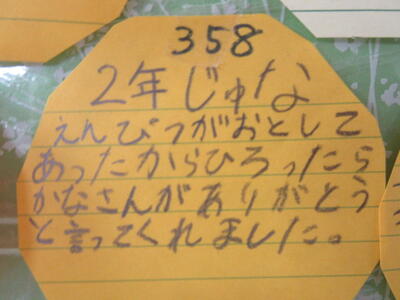 358
2年じゅな
えんぴつがおとして
あったからひろったら
かなさんがありがとう
と言ってくれました。